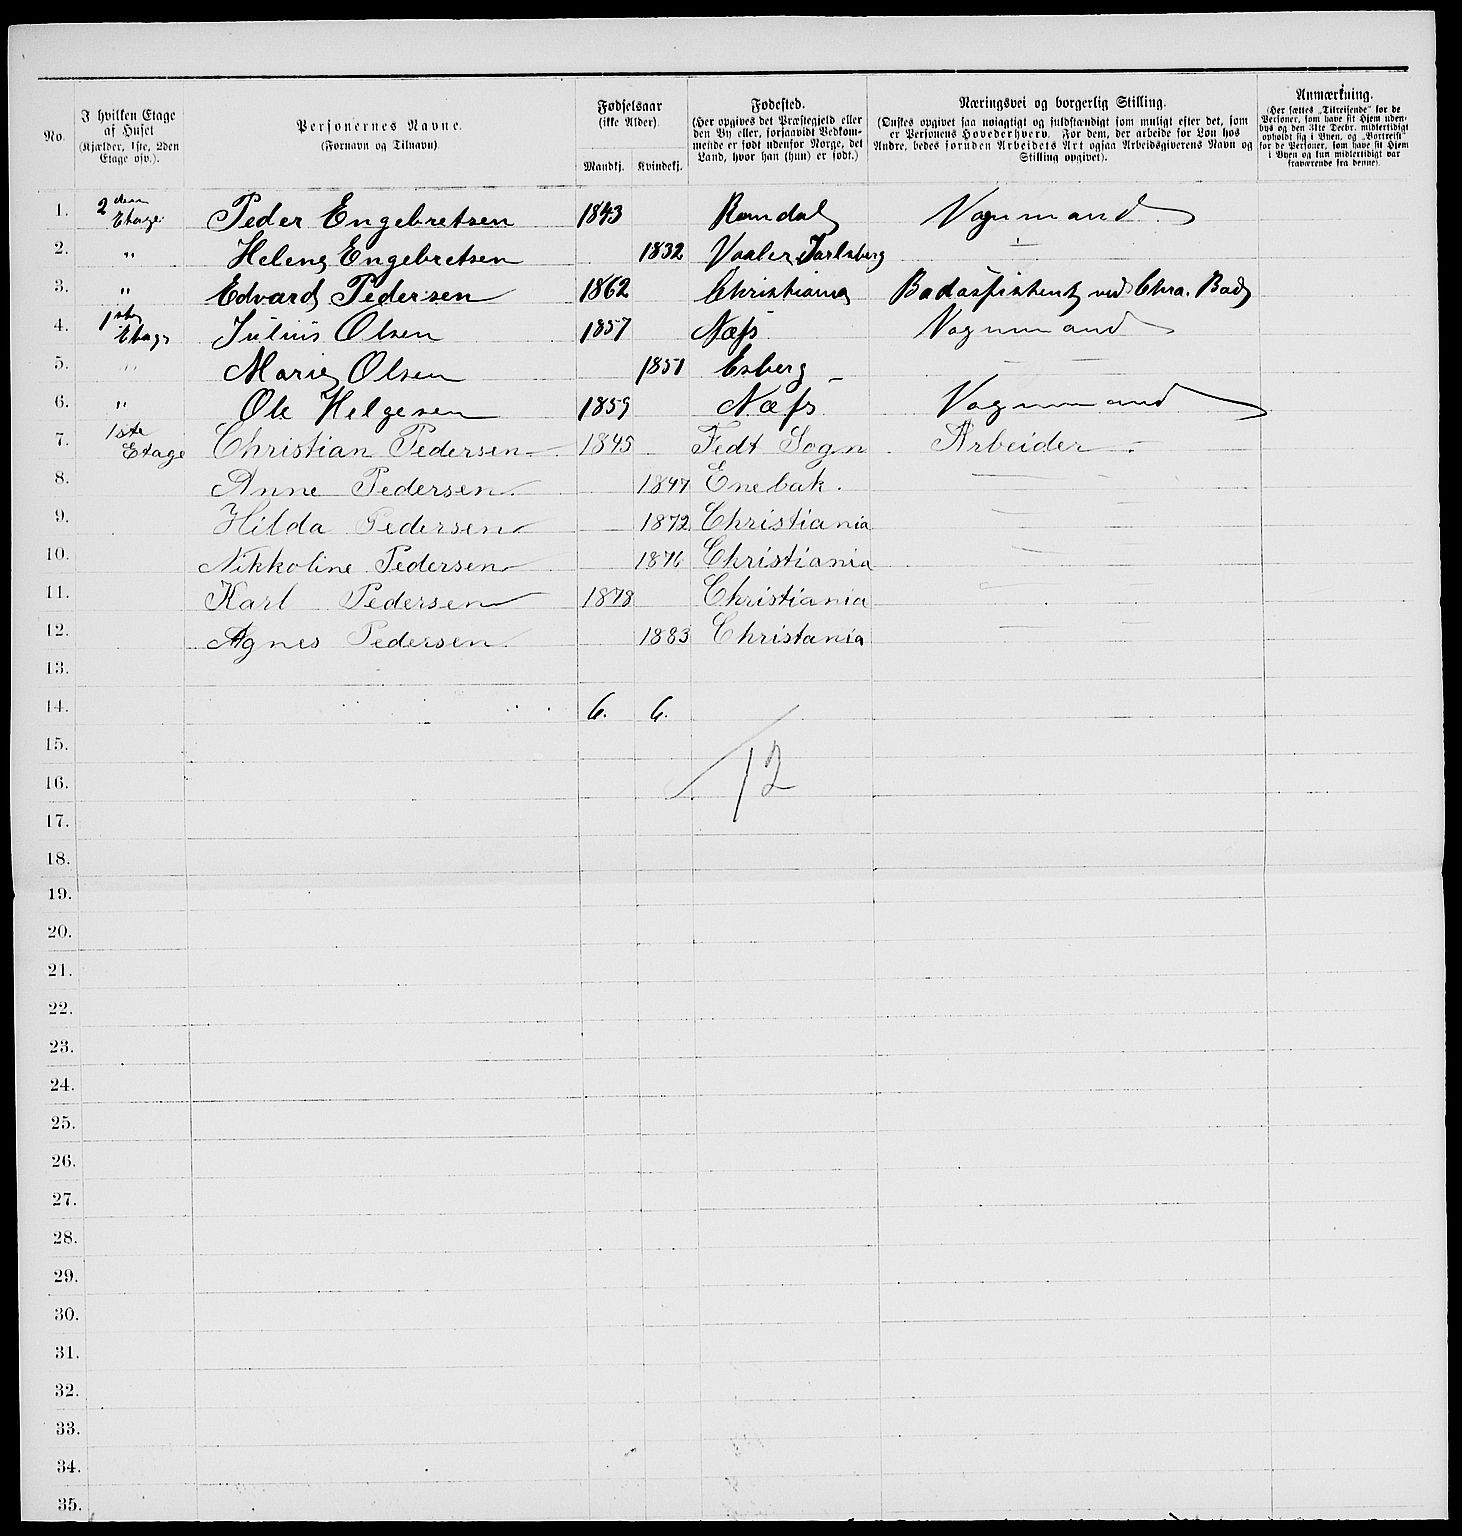 No.
I hvilken Etage af Huset (Kjælder, 1ste, 2den Etage osv.).
Personernes Navne. (Fornavn og Tilnavn)
Fødselsaar (ikke Alder). Mandkj. Kvindekj.
Fødested. (Her opgives det Præstegjeld eller den By eller, forsaavidt Vedkommende er født udenfor Norge, det Land, hvor han (hun) er født.)
Næringsvei og borgerlig Stilling. (Ønskes opgivet saa nøiagtigt og fuldstændigt som muligt efter det, som er Personens Hovederhverv. For dem, der arbeide for Løn hos Andre, bedes foruden Arbeidets Art ogsaa Arbeidsgiverens Navn og Stilling opgivet).
Anmærkning. (Her sættes „Tilreisende" for de Personer, som have sit Hjem udenbys og den 31te Decbr. midlertidigt opholdt sig i Byen, og „Bortreist" for de Personer, som have sit Hjem i Byen og kun midlertidigt var fraværende fra denne).
1. 2den Etage Peder Engebretsen 1843 Romdal Vognmand
2. " Helene Engebretsen 1832 Vaaler Jarlsberg —
3. " Edvard Pedersen 1862 Christiania Badassistent ved Chra. Bad
4. 1ste Etage Julius Olsen 1857 Næss Vognmand
5. " Marie Olsen 1851 — —
6. " Ole Helgesen 1859 Næss Vognmand
7. 1ste Etage Christian Pedersen 1845 Fedt Sogn Arbeider
8. Anne Pedersen 1847 Enebak. — —
9. Hilda Pedersen 1872 Christiania — —
10. Nikkoline Pedersen 1876 Christiania — —
11. Karl Pedersen 1878 Christiania — —
12. Agnes Pedersen 1883 Christania — —
13.
14. 6. 6.
15.
16. 12
17.
18.
19.
20.
21.
22.
23.
24.
25.
26.
27.
28.
29.
30.
31.
32.
33.
34.
35.